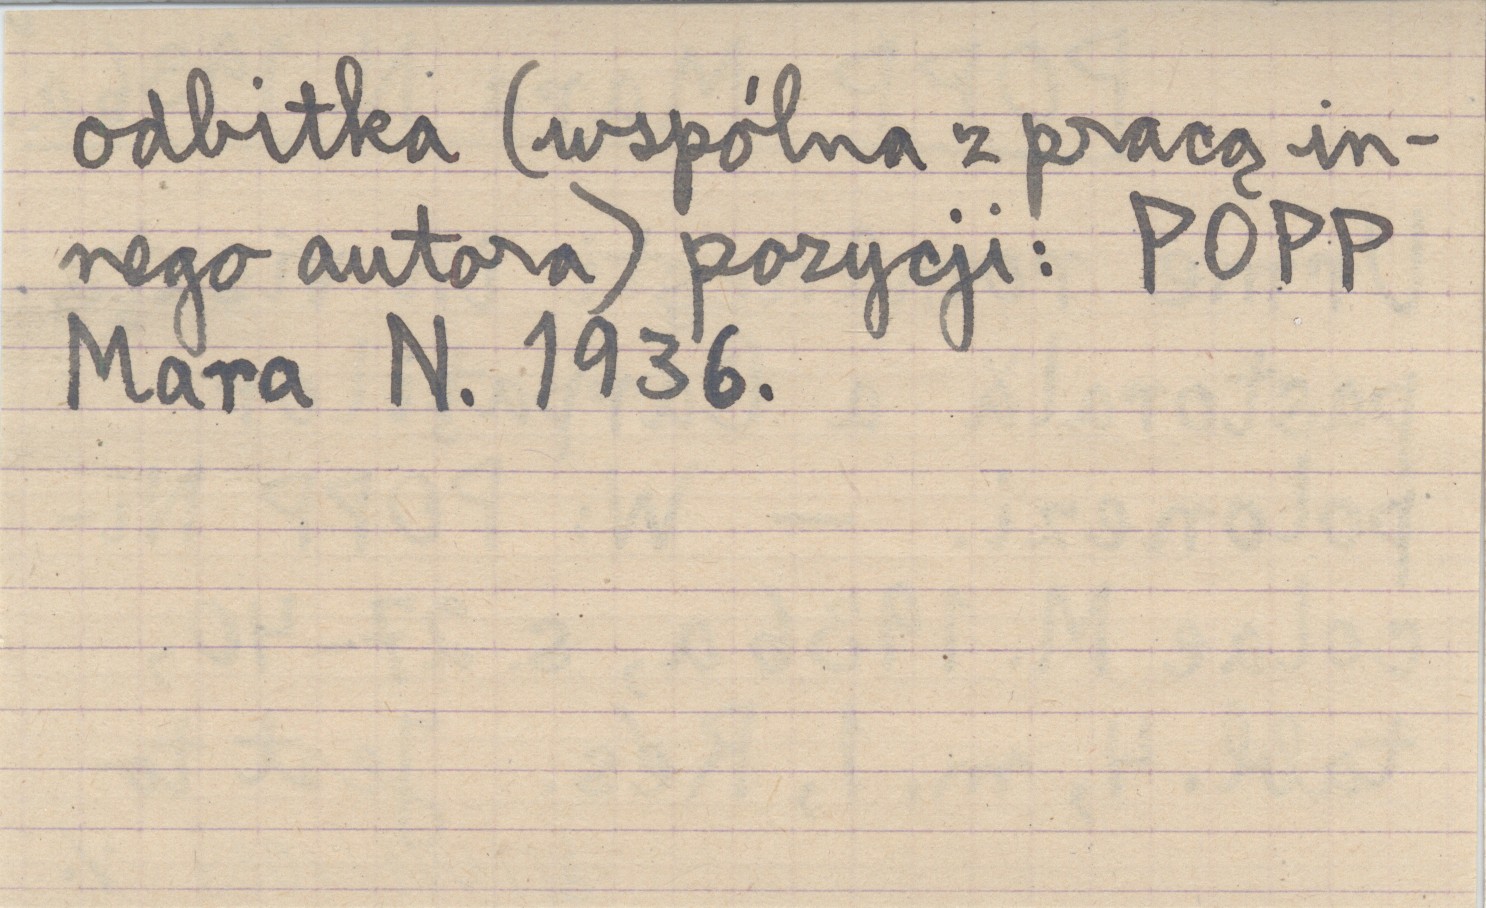 odbitka (wspólna z pracą in-
nego autora) pozycji: POPP
Mara N. 1936.